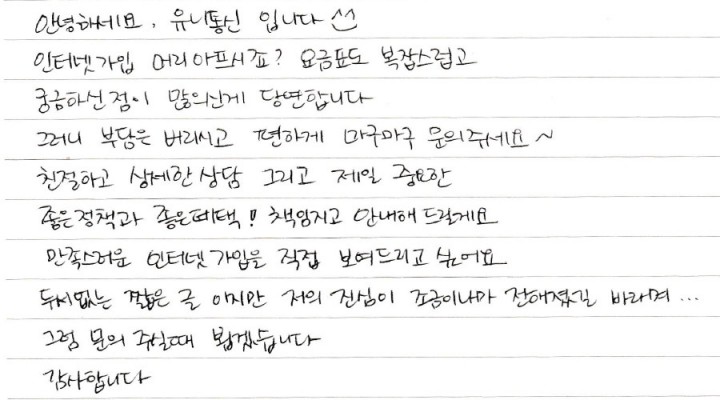 안녕하세요, 유니통신 입니다 ^^
인터넷가입 머리아프시죠? 요금표도 복잡스럽고
궁금하신점이 많의신게 당연합니다
그러니 부담은 버리시고 편하게 마구마구 문의주세요~
친절하고 상세한상담 그리고 제일 중요한
좋은정책과 좋은혜택! 책임지고 안내해드릴게요
만족스러운 인터넷가입을 직접 보여드리고 싶어요
두서없는 짧은 글 이지만 저의 진심이 조금이나마 전해졌길 바라며...
그럼 문의 주실때 뵙겠습니다
감사합니다